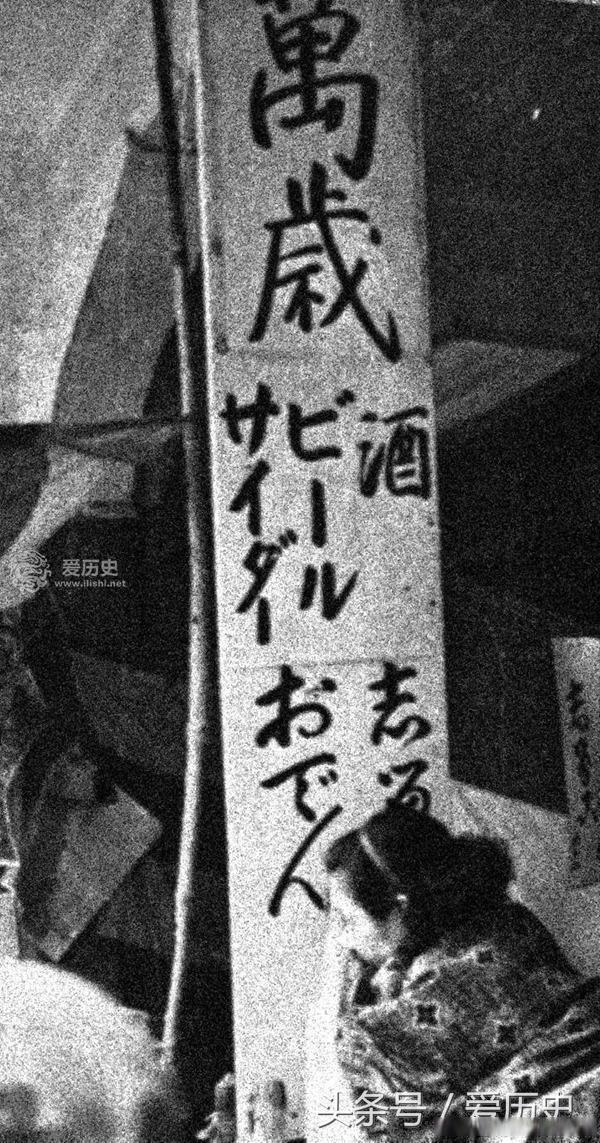 萬歳
酒
ビール
サイダー
志る
おでん
爱历史
www.ilishi.net
头条号 / 爱历史